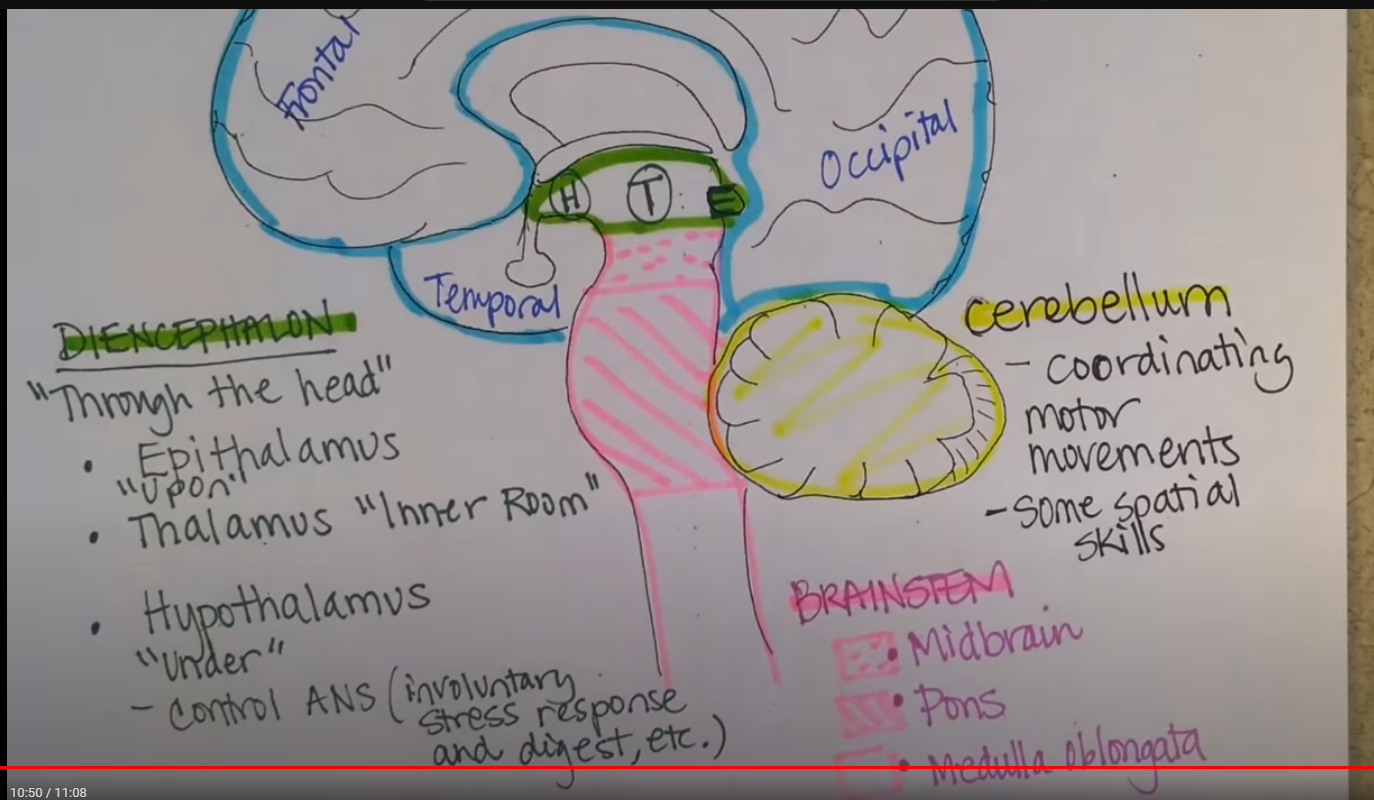 Frontal
Occipital
H
T
E
Temporal
DIENCEPHALON
"Through the head"
• Epithalamus
"upon"
• Thalamus "Inner Room"
• Hypothalamus
"Under"
- Control ANS (involuntary
stress response
and digest, etc.)
cerebellum
- coordinating
motor
movements
- some spatial
skills
BRAINSTEM
• Midbrain
• Pons
• Medulla oblongata
10:50 / 11:08